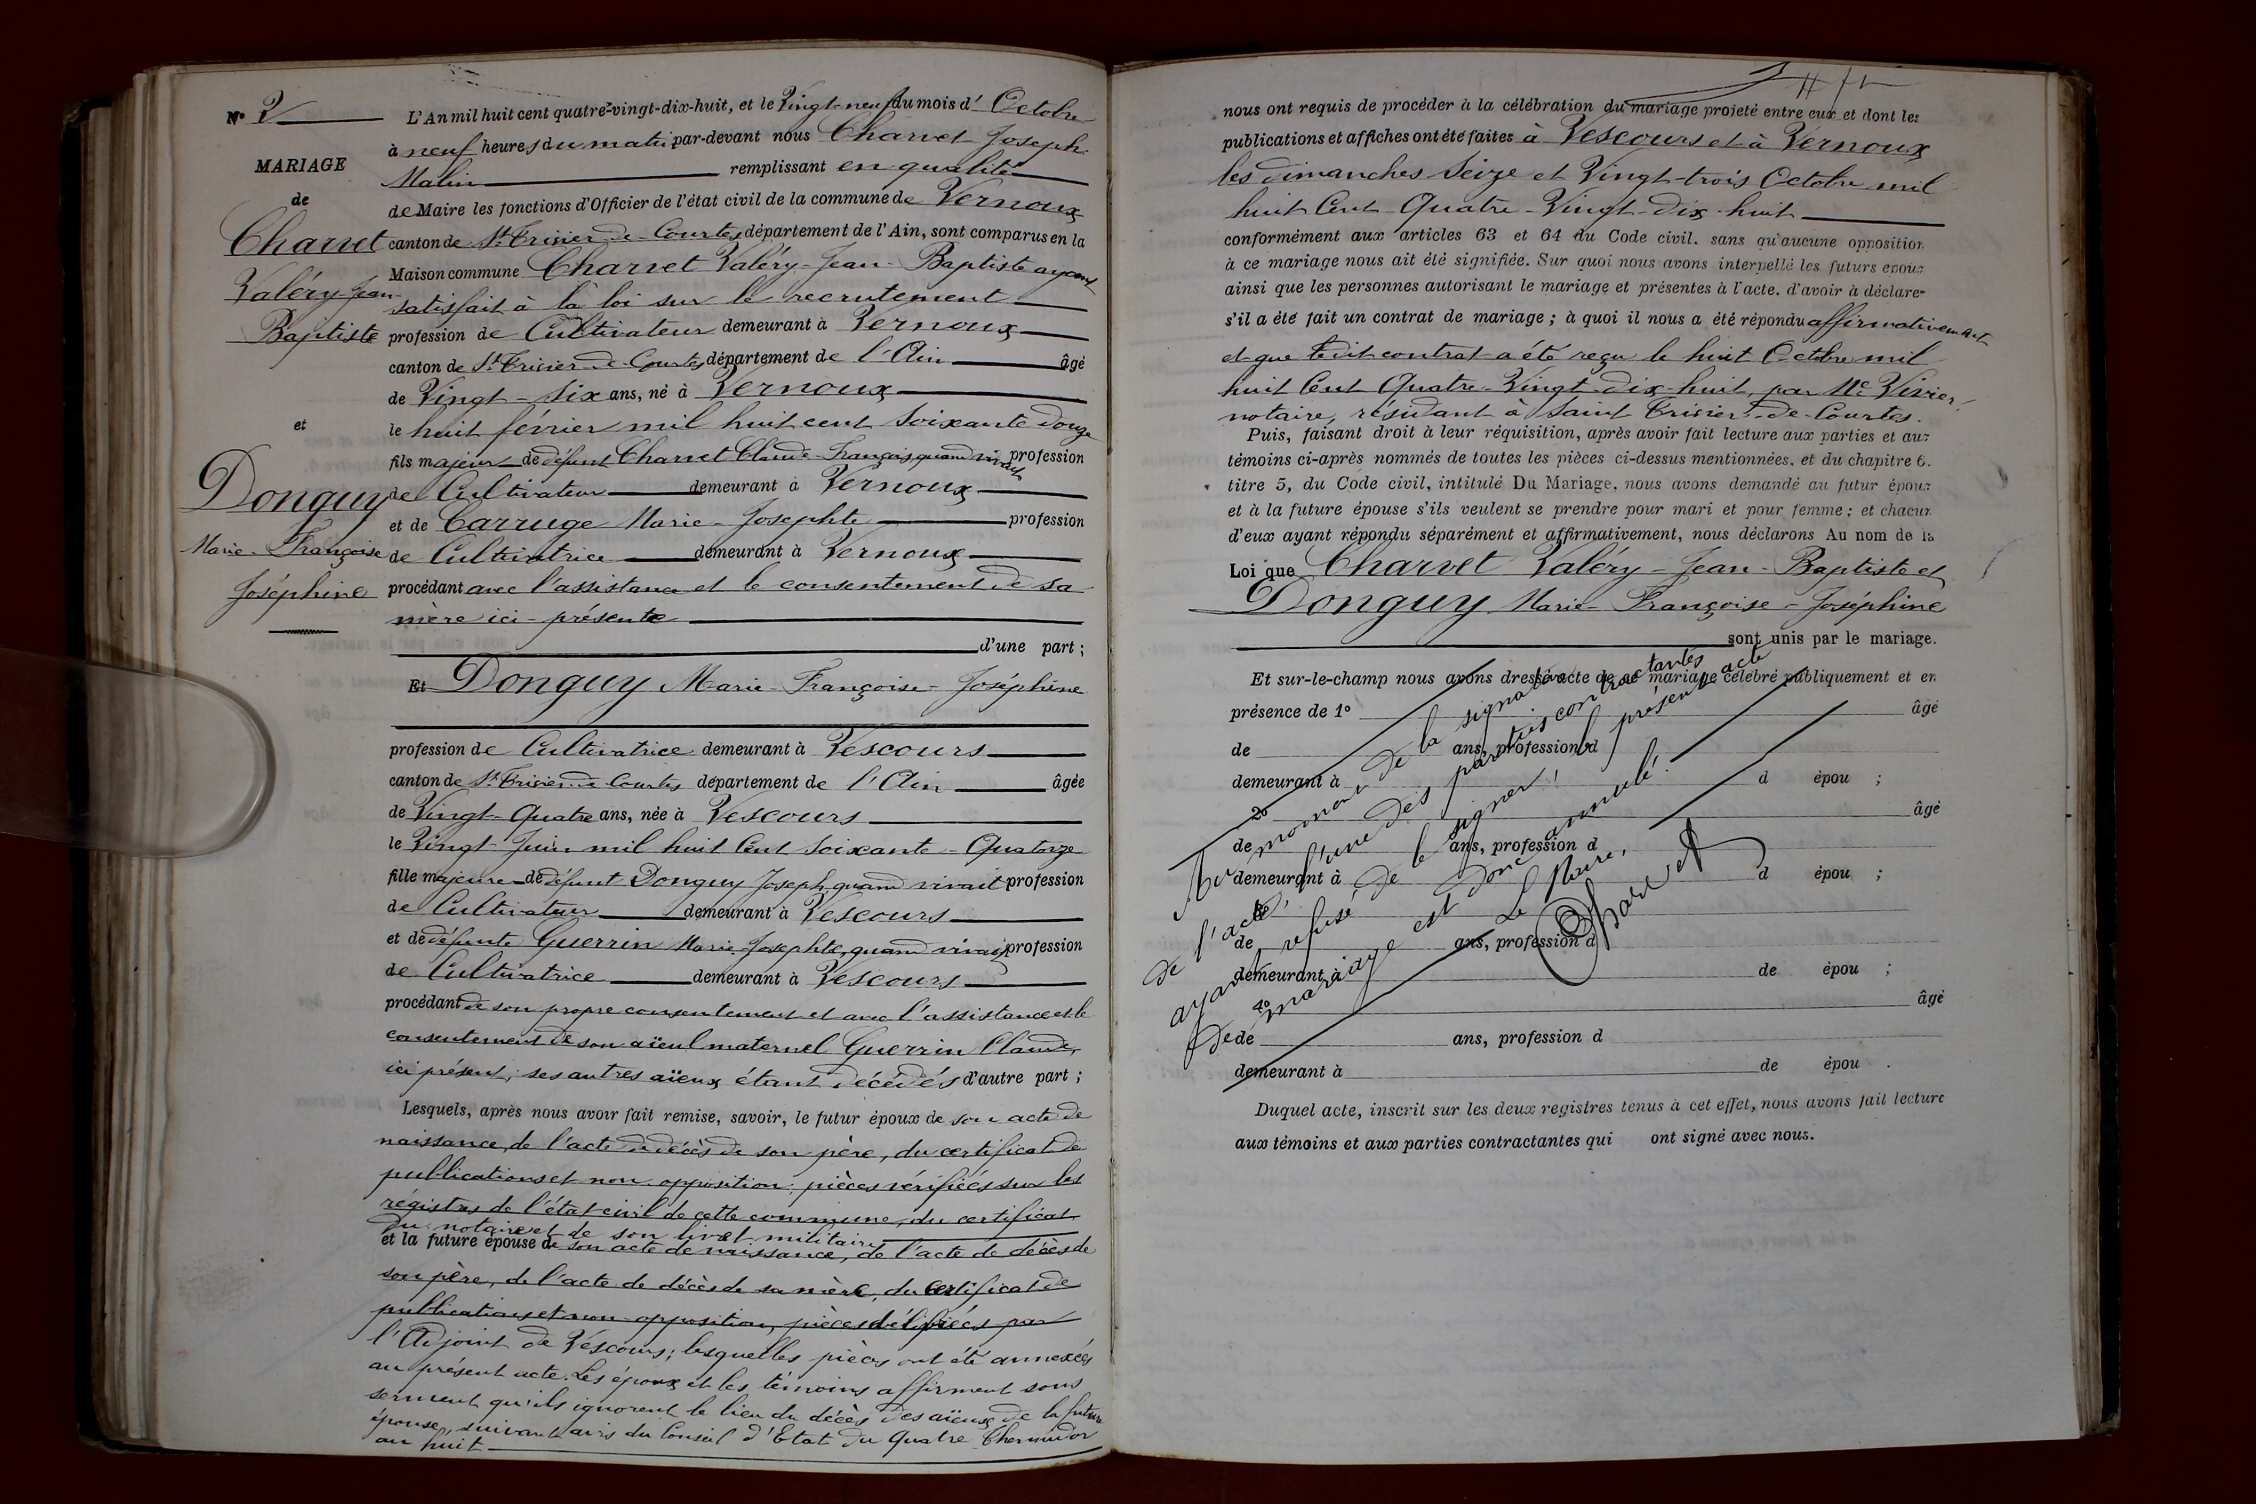 N° 2
MARIAGE
de
Charvet
Valéry-Jean-
Baptiste
et
Donguy
Marie-Françoise
Joséphine
L'An mil huit cent quatre-vingt-dix-huit, et le Vingt-neuf du mois d' Octobre
à neuf heures du matin par-devant nous Charvet Joseph
Malin remplissant en qualité
de Maire les fonctions d'Officier de l'état civil de la commune de Vernoux
canton de St Trivier-de-Courtes département de l'Ain, sont comparus en la
Maison commune Charvet Valéry-Jean-Baptiste ayant
satisfait à la loi sur le recrutement
profession de Cultivateur demeurant à Vernoux
canton de St Trivier-de-Courtes département de l'Ain âgé
de Vingt-Six ans, né à Vernoux
le huit février mil huit cent Soixante Douze
fils majeur de défunt Charvet Claude-François quand vivait profession
de Cultivateur demeurant à Vernoux
et de Carruge Marie-Josephte profession
de Cultivatrice demeurant à Vernoux
procédant avec l'assistance et le consentement de sa
mère ici-présente
d'une part ;
Et Donguy Marie-Françoise-Joséphine
profession de Cultivatrice demeurant à Vescours
canton de St Trivier-de-Courtes département de l'Ain âgée
de Vingt-Quatre ans, née à Vescours
le Vingt Juin mil huit Cent Soixante-Quatorze
fille majeure de défunt Donguy Joseph quand vivait profession
de Cultivateur demeurant à Vescours
et de défunte Guerrin Marie-Josephte, quand vivait profession
de Cultivatrice demeurant à Vescours
procédant de son propre consentement et avec l'assistance et le
consentement de son aïeul maternel Guerrin Claude,
ici présent, ses autres aïeux étant décédés d'autre part ;
Lesquels, après nous avoir fait remise, savoir, le futur époux de son acte de
naissance, de l'acte de décès de son père, du certificat de
publications et non opposition ; pièces vérifiées sur les
régistres de l'état civil de cette commune, du certificat
du notaire et de son livret militaire
et la future épouse de son acte de naissance, de l'acte de décès de
son père, de l'acte de décès de sa mère, du certificat de
publications et non opposition, pièces délivrées par
l'Adjoint de Vescours ; lesquelles pièces ont été annexées
au présent acte. Les époux et les témoins affirment sous
serment qu'ils ignorent le lieu du décès des aïeux de la future
épouse, suivant avis du Conseil d'Etat du Quatre Thermidor
an huit
nous ont requis de procéder à la célébration du mariage projeté entre eux et dont les
publications et affiches ont été faites à Vescours et à Vernoux
les dimanches Seize et Vingt-trois Octobre mil
huit Cent Quatre-Vingt-Dix-huit
conformément aux articles 63 et 64 du Code civil. sans qu'aucune opposition
à ce mariage nous ait été signifiée. Sur quoi nous avons interpellé les futurs époux
ainsi que les personnes autorisant le mariage et présentes à l'acte. d'avoir à déclarer
s'il a été fait un contrat de mariage ; à quoi il nous a été répondu affirmativement
et que ledit contrat a été reçu le huit Octobre mil
huit Cent Quatre-Vingt-Dix-huit, par Me Vivier,
notaire, résidant à Saint Trivier-de-Courtes.
Puis, faisant droit à leur réquisition, après avoir fait lecture aux parties et aux
témoins ci-après nommés de toutes les pièces ci-dessus mentionnées, et du chapitre 6.
titre 5, du Code civil, intitulé Du Mariage, nous avons demandé au futur époux
et à la future épouse s'ils veulent se prendre pour mari et pour femme ; et chacun
d'eux ayant répondu séparément et affirmativement, nous déclarons Au nom de la
Loi que Charvet Valéry-Jean-Baptiste et
Donguy Marie-Françoise-Joséphine
sont unis par le mariage.
Et sur-le-champ nous avons dressé acte de ce mariage célébré publiquement et en
présence de 1° âgé
de ans, profession d
demeurant à d épou ;
2° âgé
de ans, profession d
demeurant à d épou ;
de ans, profession d
demeurant à de épou ;
4° âgé
de ans, profession d
demeurant à de épou .
Au moment de la signature
de l'acte, l'une des parties contractantes
ayant refusé de le signer, le présent acte
de mariage est donc annulé.
Le Maire,
Charvet
Duquel acte, inscrit sur les deux registres tenus à cet effet, nous avons fait lecture
aux témoins et aux parties contractantes qui ont signé avec nous.